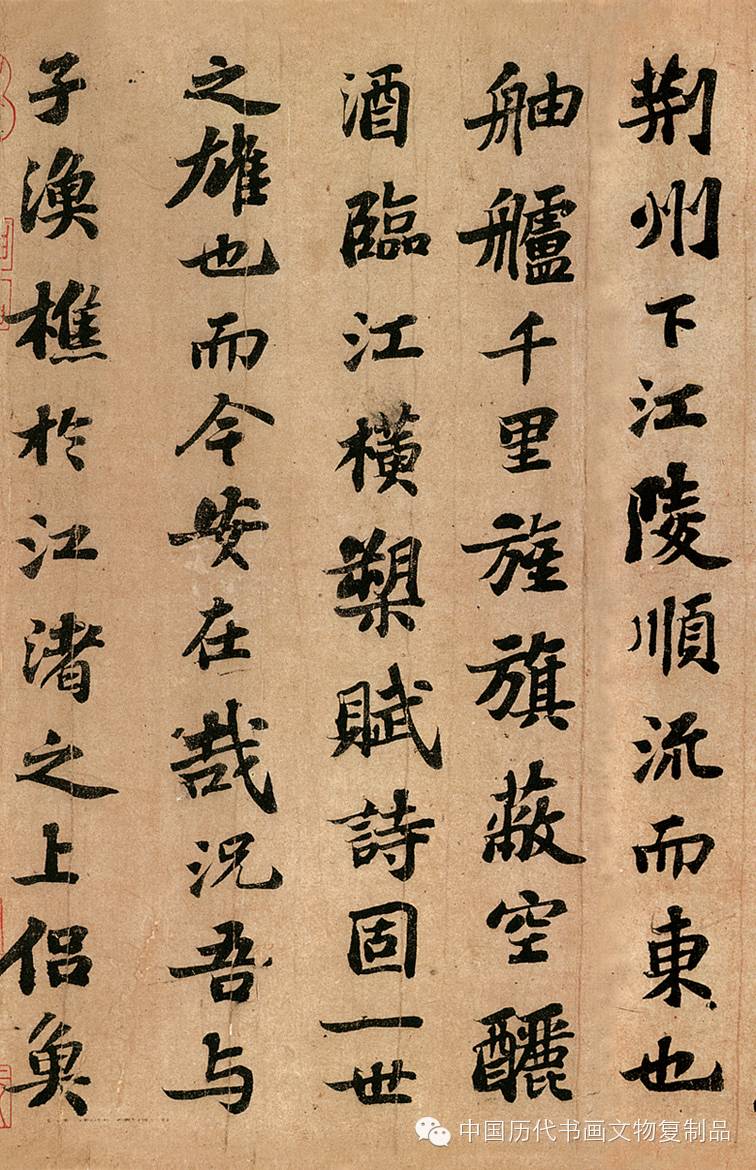 荆州下江陵順流而東也
舳艫千里旌旗蔽空釃
酒臨江橫槊賦詩固一世
之雄也而今安在哉況吾与
子漁樵於江渚之上侣魚
中国历代书画文物复制品